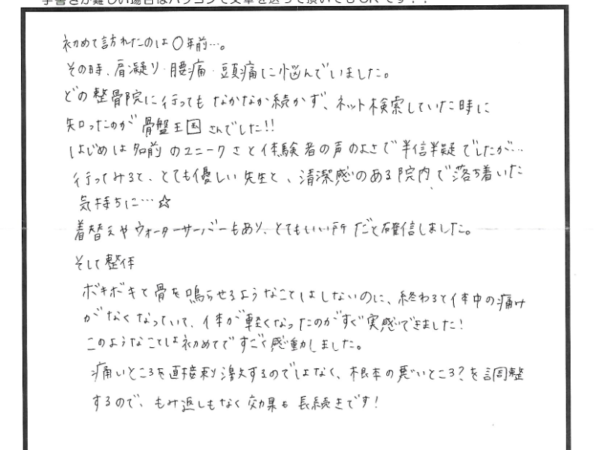 手書きが難しい場合はパソコンで文章を送って頂いてもOKです！！
初めて訪れたのは〇年前…。
その時、肩凝り・腰痛・頭痛に悩んでいました。
どの整骨院に行っても なかなか続かず、ネット検索していた時に
知ったのが 骨盤王国 さんでした!!
はじめは名前のユニークさと体験者の声のよさで半信半疑でしたが…
行ってみると、とても優しい先生と、清潔感のある院内で落ち着いた
気持ちに…☆
着替えやウォーターサーバーもあり、とてもいい所だと確信しました。
そして整体
ボキボキと骨を鳴らせるようなことはしないのに、終わると体中の痛み
がなくなっていて、体が軽くなったのがすぐ実感できました!
このようなことは初めてですごく感動しました。
痛いところを直接刺激するのではなく、根本の悪いところ?を調整
するので、もみ返しもなく効果も長続きです!